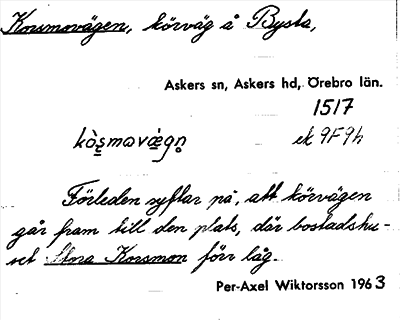 Korsmovägen, körväg å Bysta,
Askers sn, Askers hd, Örebro län.
1517
ek 9F9h
Förleden syftar på, att körvägen
går fram till den plats, där bostadshu-
set Stora Korsmon förr låg.
Per-Axel Wiktorsson 1963